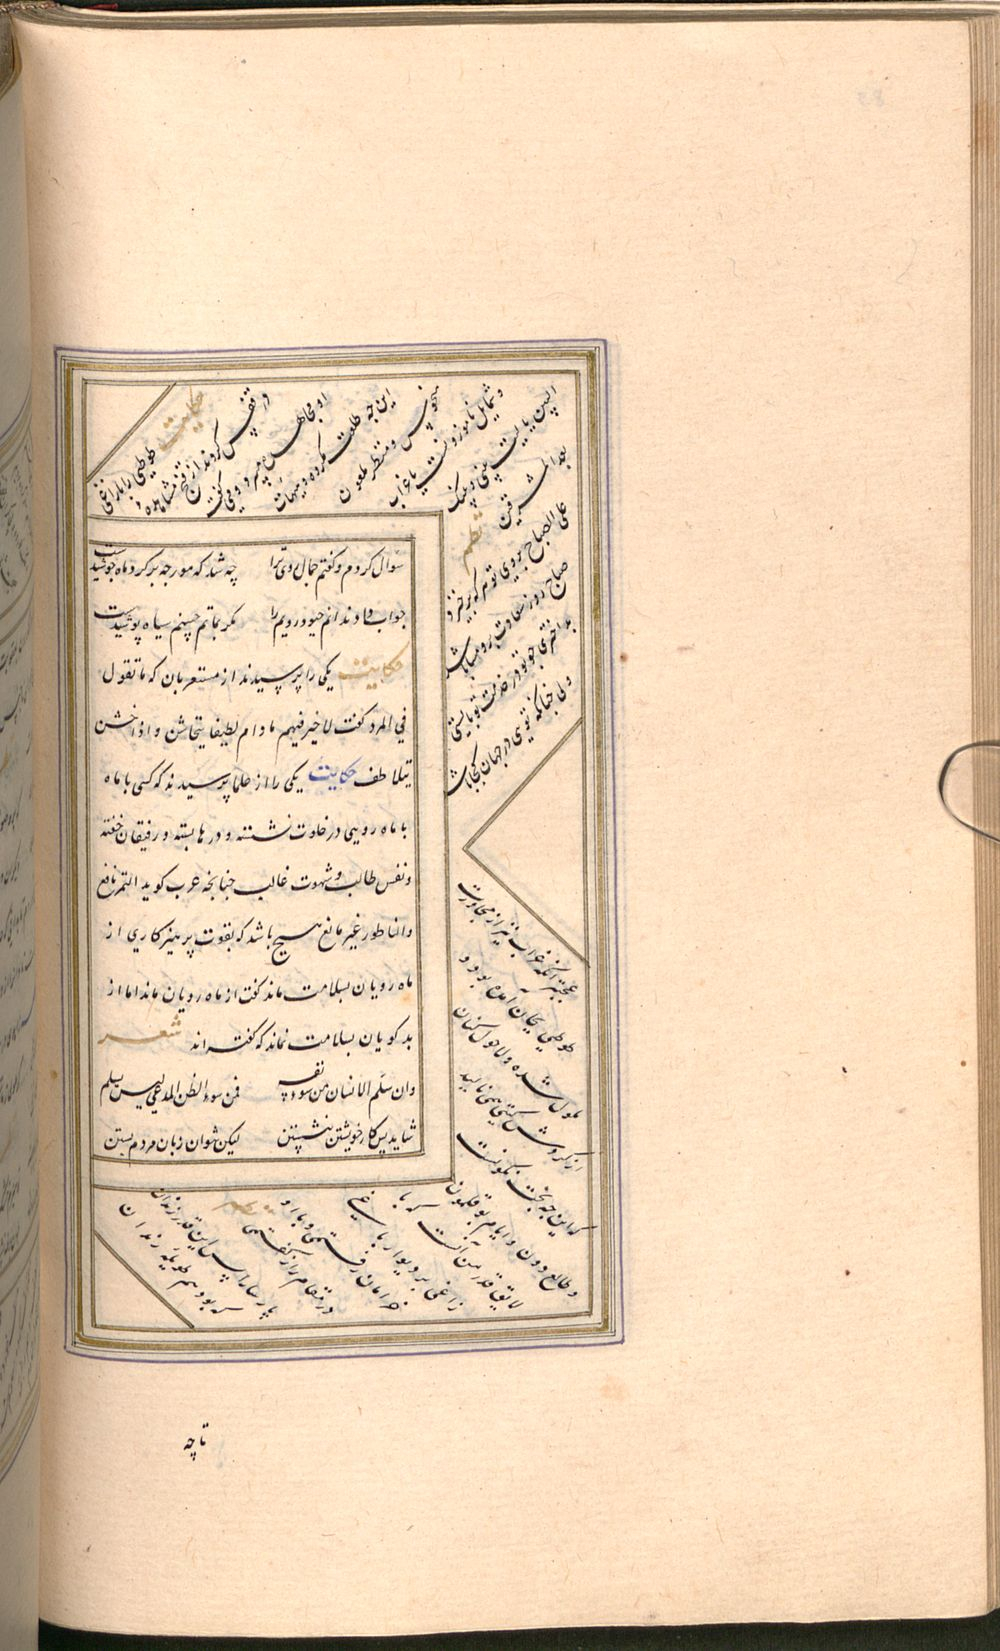 سوال کردم و گفتم جمال روی ترا چه شد که مورچه بر گرد ماه جوشیدست
جواب داد ندانم چه بود رویم را مگر بماتم حسنم سیاه پوشیدست
حکایت یکی را پرسیدند از مستعربان که ما تقول
فی المرد گفت لا خیر فیهم مادام لطیفا یتخاشن و اذا خشن
یتلاطف حکایت یکی را از علما پرسیدند که کسی با ماه
با ماه رویی در خلوت نشسته و درها بسته و رفیقان خفته
و نفس طالب و شهوت غالب چنانچه عرب گوید التمر یانع
والناطور غیر مانع هیچ باشد که بقوت پرهیزکاری از
ماه رویان بسلامت ماند گفت از ماه رویان ماند اما از
بدگویان بسلامت نماند که گفته اند شعر
وان سلم الانسان من سوء نفسه فمن سوء الظن المدعی لیس یسلم
شاید پس کار خویشتن بنشستن لیکن نتوان زبان مردم بستن
حکایت طوطی را با زاغی
در قفس کردند از قبح مشاهده
او مجاهده میبرد و میگفت
این چه طلعت مکروه و هیأت
ممقوت و منظر ملعون
و شمایل ناموزونست یا غراب
البین یا لیت بینی و بینک
بعد المشرقین نظم
علی الصباح بروی تو هر که برخیزد
صباح روز سلامت برو مسا باشد
بد اختری چو تو در خدمت تو بایستی
ولی چنانکه تویی در جهان کجا باشد
عجبتر آنکه غراب نیز از مجاورت
طوطی بجان آمده بود و
ملول شده و لاحول کنان
از گردش گیتی همی نالید
که این چه بخت نگونست
و طالع دون و ایام بوقلمون
لایق قدر من آنست که با
زاغی بر دیوار باغی
خرامان رفتمی و با او
در مقام راز گفتمی
پارسا را بس این قدر زندان
که بود هم طویله رندان
تا چه